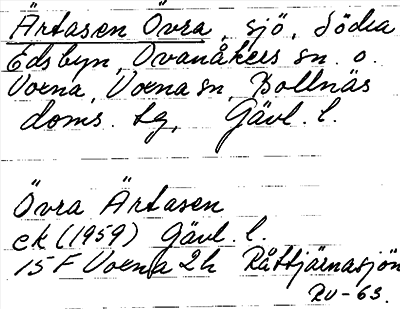 Ärtasen Övra, sjö, Södra
Edsbyn, Ovanåkers sn. o.
Voxna, Voxna sn, Bollnäs
doms. sg, Gävl. l.
Övra Ärtasen
ek (1959) Gävl. l.
15 F Voxna 2h Råttjärnasjön
RV-63.